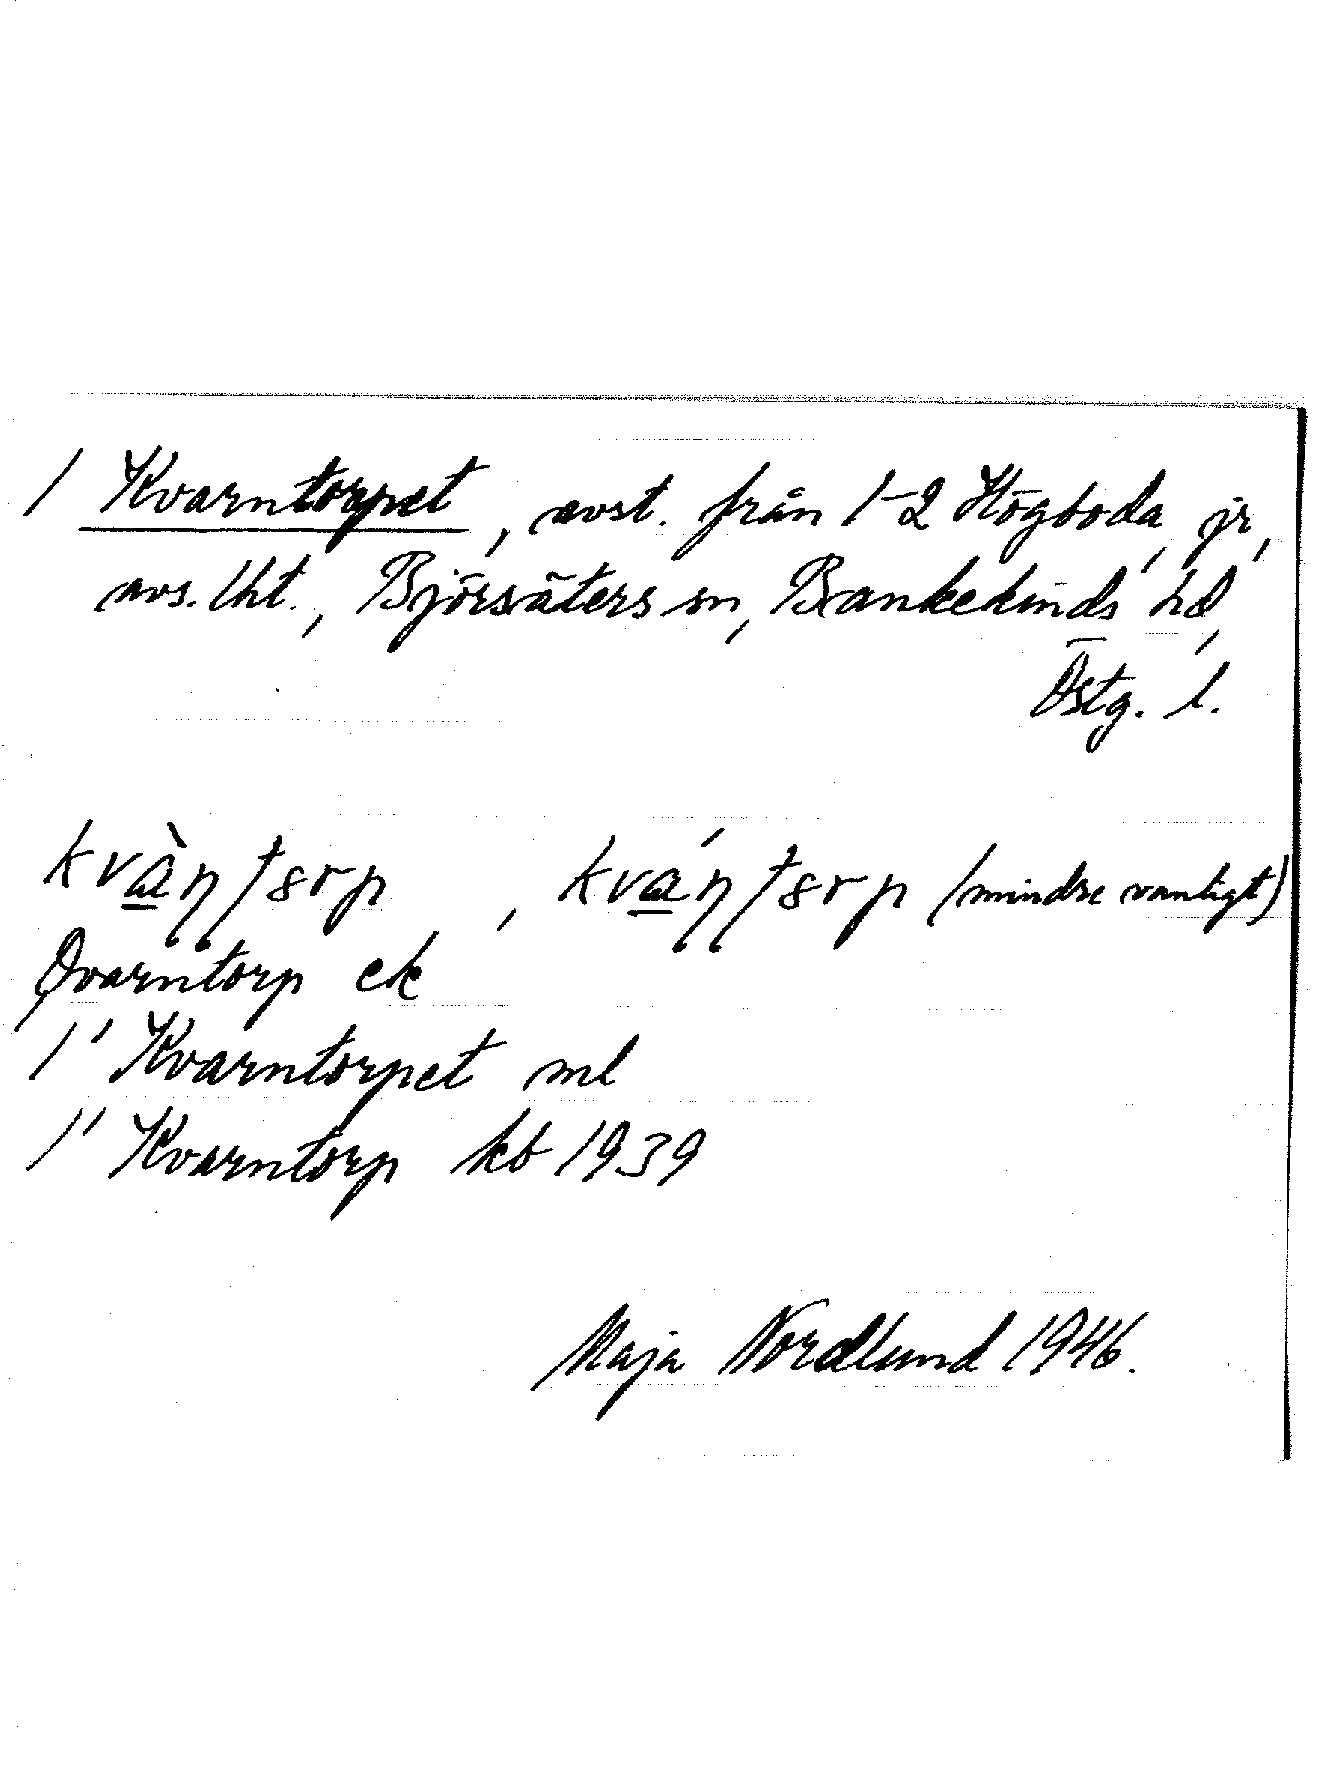 1 Kvarntorpet, avst. från 1-2 Högboda, jr,
avs. lht., Björsäters sn, Bankekinds hd,
Östg. l.
kvàṇʈ8rp, kváṇʈ8rp (mindre vanligt)
Qvarntorp ek
1' Kvarntorpet ml
1' Kvarntorp kb 1939
Maja Nordlund 1946.